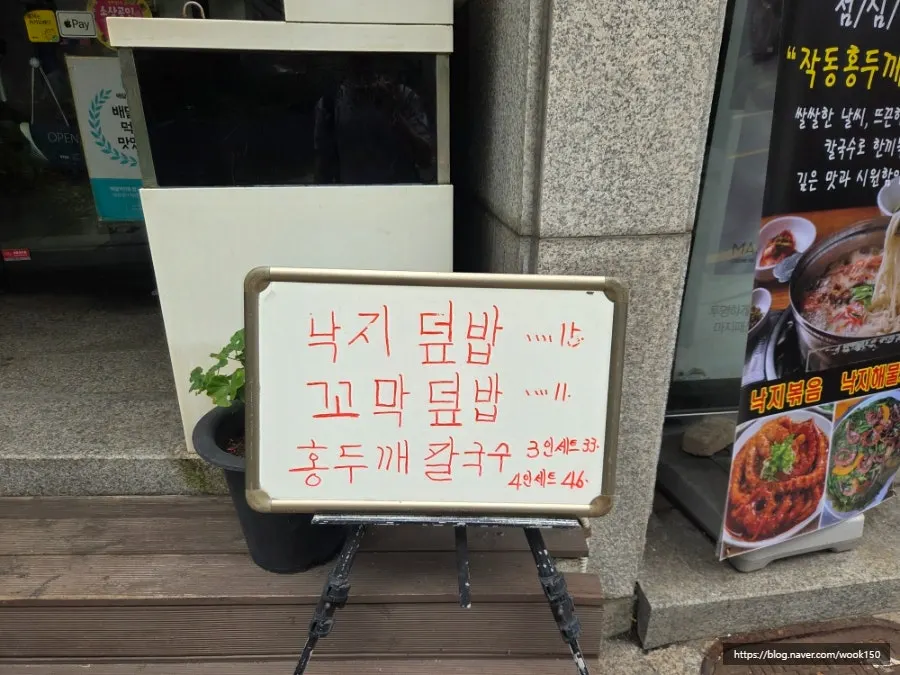 Pay
OPEN
낙지 덮밥 ····15.
꼬막덮밥 ····11.
홍두깨 칼국수 3인세트 33.
4인세트 46.
점/심/
"작동홍두깨
쌀쌀한 날씨, 뜨끈한
칼국수로 한끼
깊은 맛과 시원함
낙지볶음 낙지해물
https://blog.naver.com/wook150